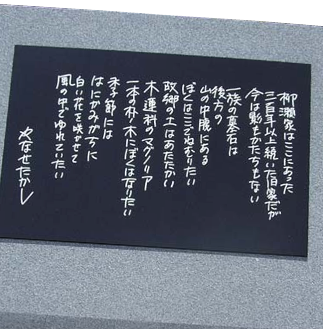 柳瀬家はここにあった
三百年以上続いた旧家だが
今は影もかたちもない
一族の墓石は
後方の
山の中腹にある
ぼくはここでねむりたい
故郷の土はあたたかい
木蓮科のマグノリア
一本の朴の木にぼくはなりたい
季節には
はにかみがちに
白い花を咲かせて
風の中でゆれていたい
やなせたかし